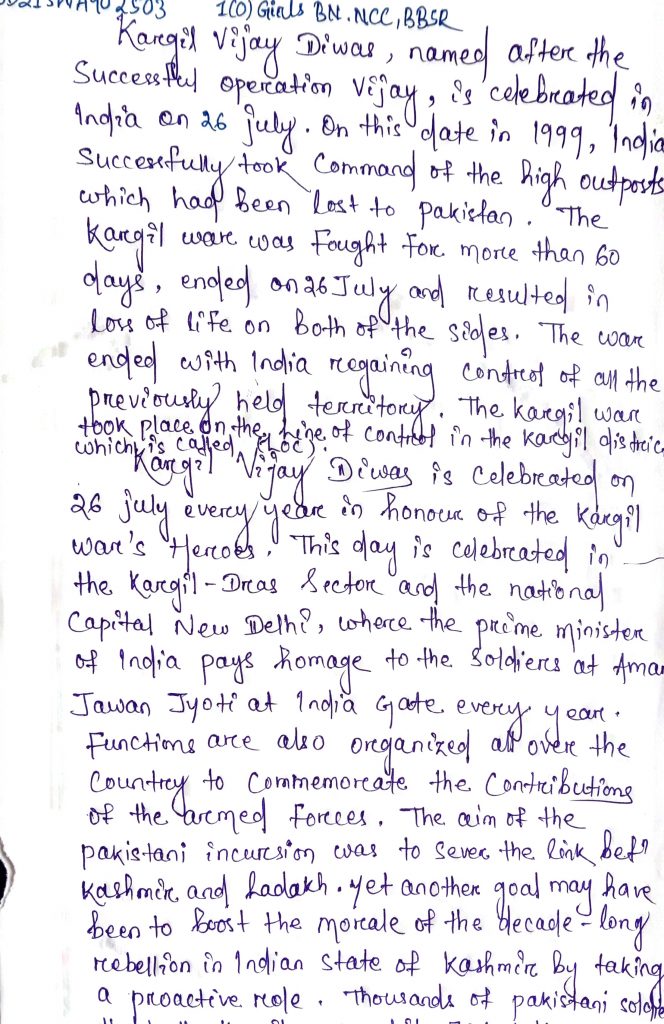 2503 1(O) Girls BN.NCC, BBSR
Kargil Vijay Diwas, named after the
Successful operation Vijay, is celebrated in
India on 26 July. On this date in 1999, India
Successfully took Command of the high outposts
which had been lost to pakistan. The
Kargil ware was fought for more than 60
days, ended on 26 July and resulted in
loss of life on both of the sides. The war
ended with India regaining control of all the
previously held territory. The kargil war
took place on the line of control in the kargil distric
which is called (LOC).
Kargil Vijay Diwas is celebrated on
26 july every year in honour of the Kargil
War's Heroes. This day is celebrated in
the Kargil-Dras Sector and the national
Capital New Delhi, where the prime minister
of India pays homage to the Soldiers at Amar
Jawan Jyoti at India Gate every year.
Functions are also organized all over the
Country to Commemorate the Contributions
of the armed forces. The aim of the
pakistani incursion was to sever the link betn
Kashmir and Ladakh. yet another goal may have
been to boost the morale of the decade-long
rebellion in Indian state of Kashmir by taking
a proactive role. Thousands of pakistani soldie